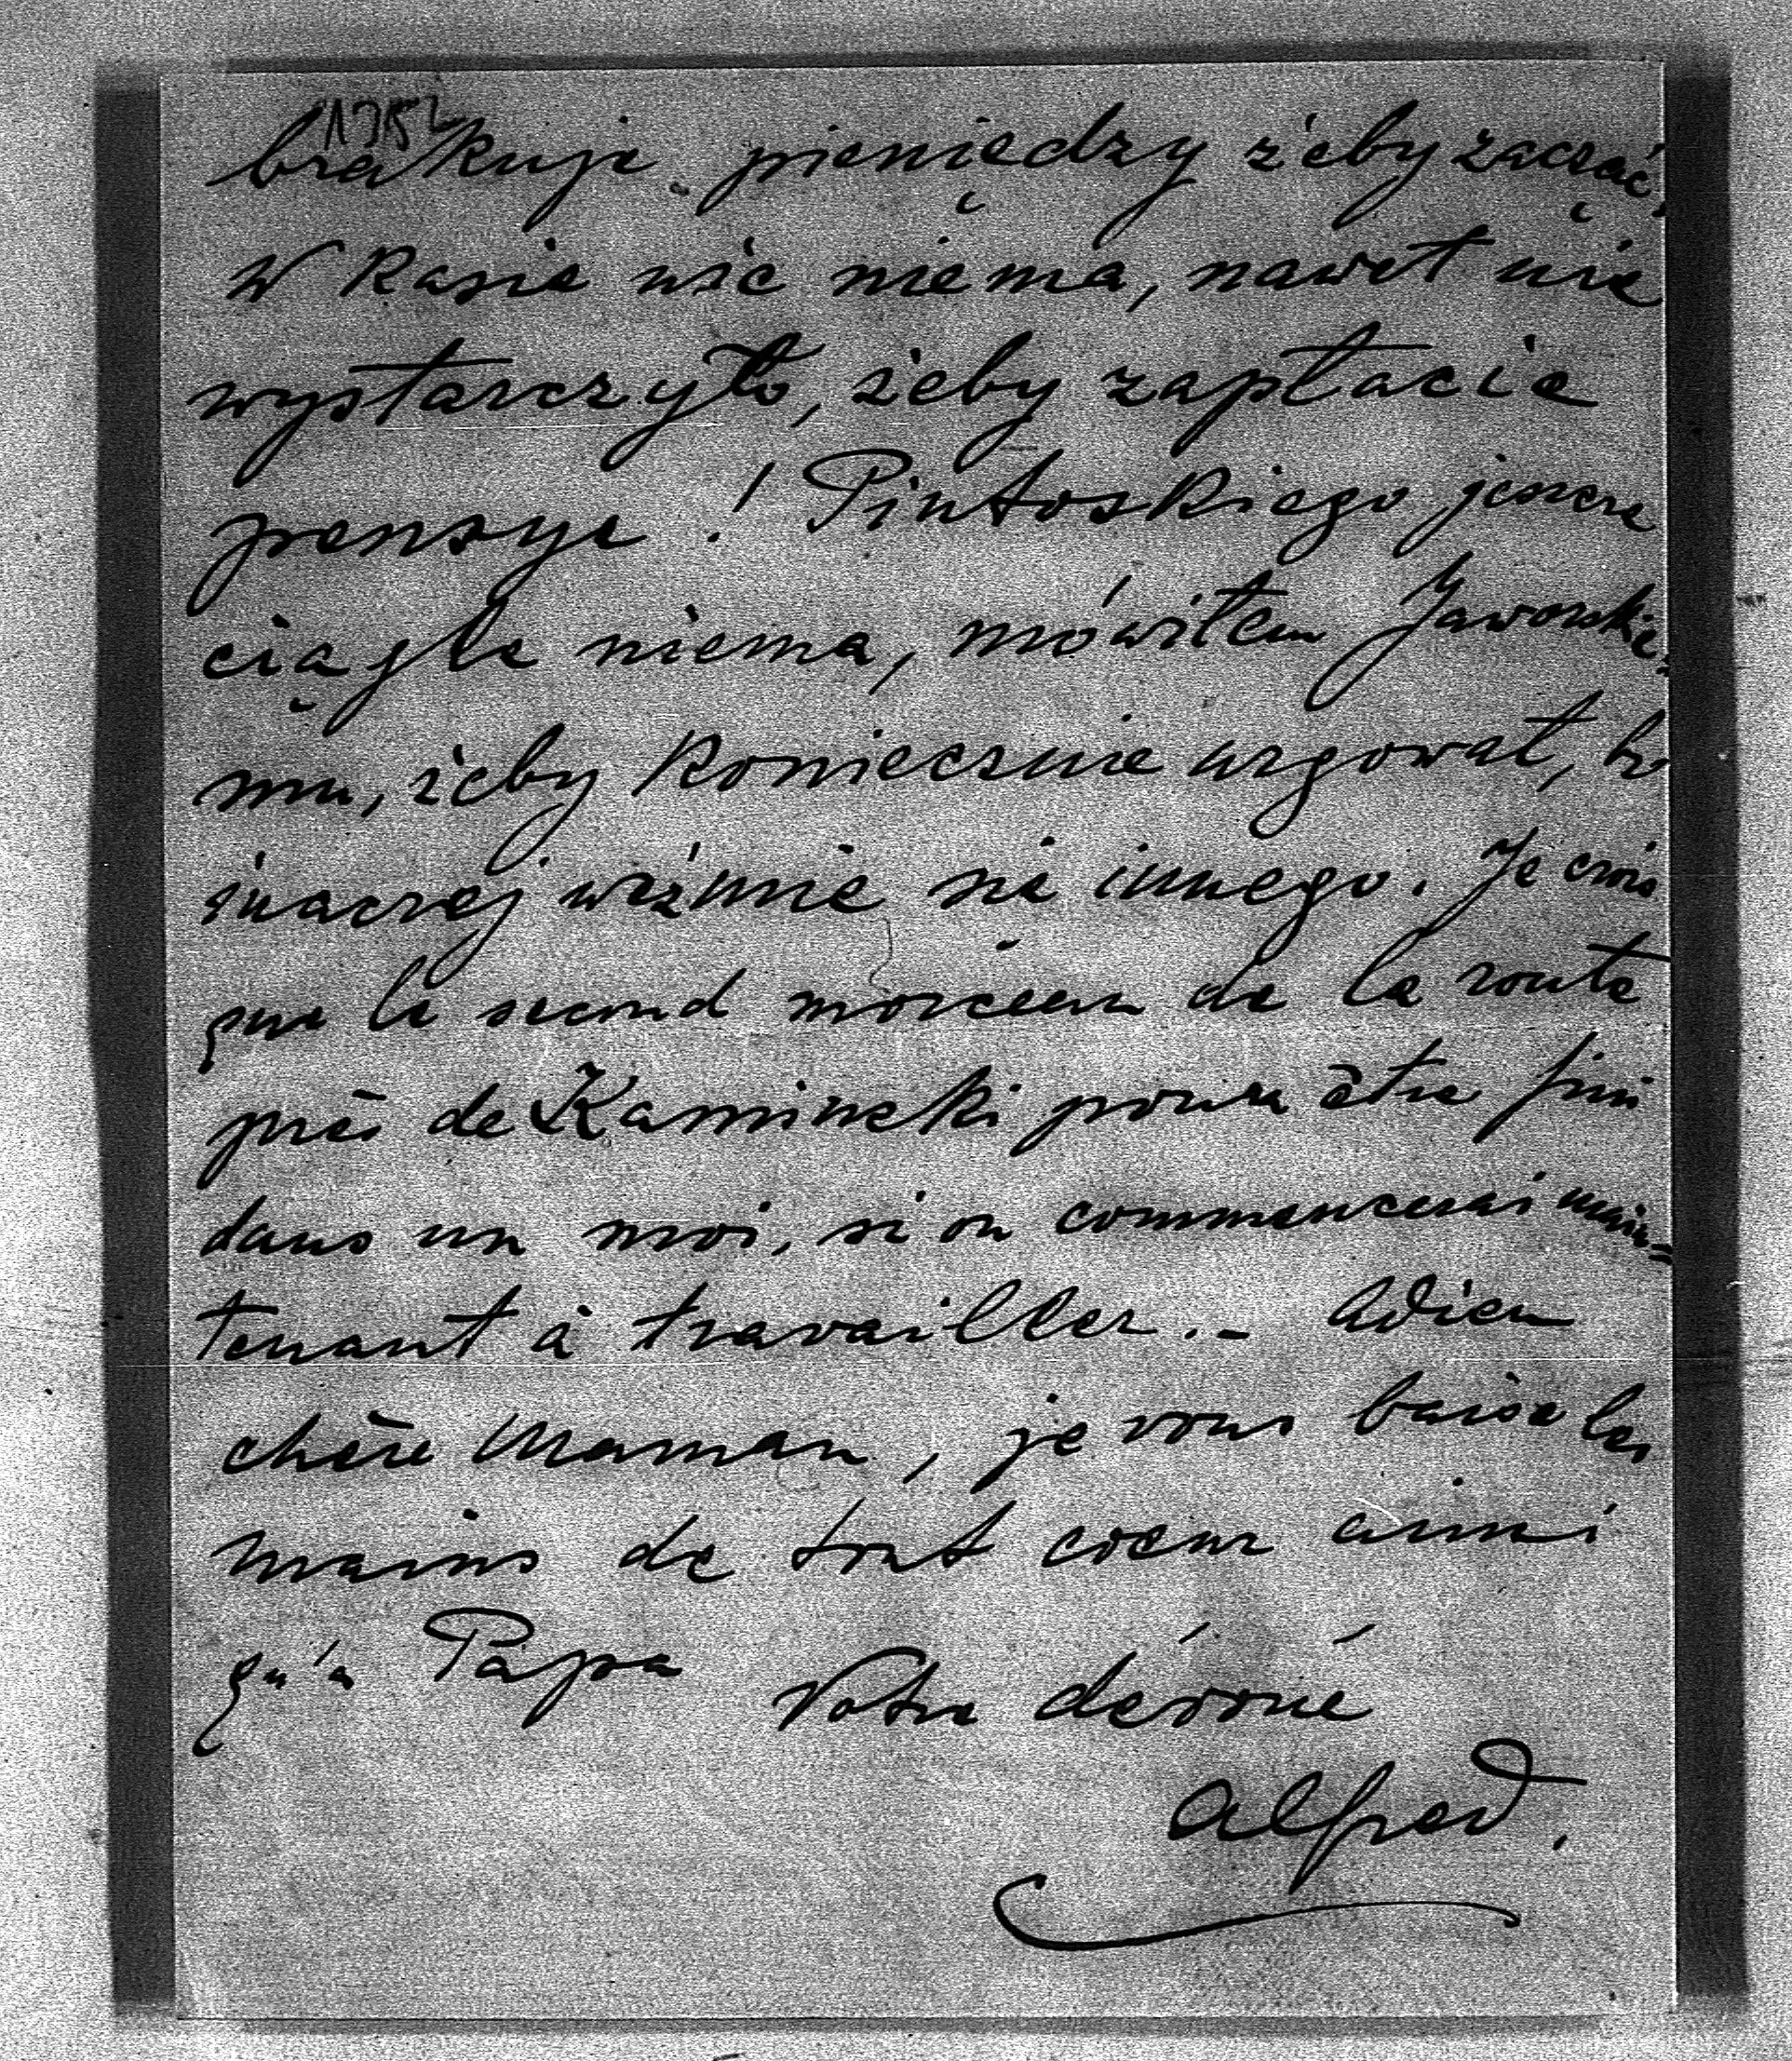 1752
brakuje pieniędzy żeby zacząć.
W Kasie nic niema, nawet nie
wystarczyło, żeby zapłacie
pensye! Pintoskiego jeszcze
ciągle niema, mówiłem Jaworskie-
mu, żeby koniecznie urgował, bo
inaczej weźmie się innego. Je crois
que le second morceau de la route
près de Kaminski poura être fini
dans un moi, si on commencerai main=
tenant à travailler.- Adieu
chère Maman, je vous baise les
mains de tout coeur ainsi
qu'a Papa
Votre dévoué
Alfred.